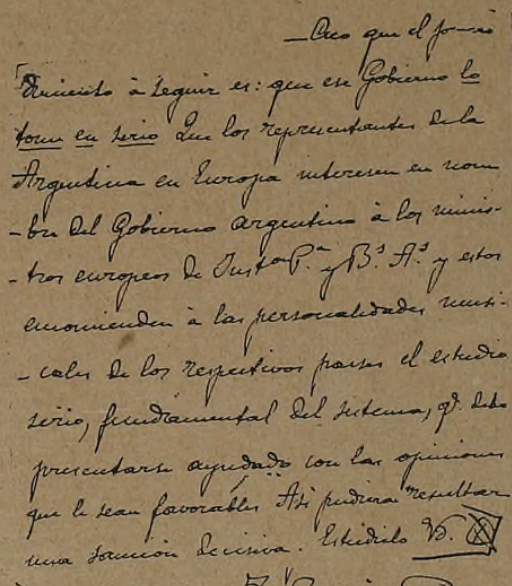 —Creo que el
à seguir es: que ese Gobierno lo
tome en serio Que los representantes de la
Argentina en Europa interesen en nom
-bre del Gobierno argentino à los minis-
-tros europeos de Inst.on P.a y B.s A.s y estos
encomienden à las personalidades musi-
-cales de los respectivos paises el estudio
serio, fundamental del sistema, qe. debe
presentarse ayudado con las opiniones
que le sean favorables Asi pudiera resultar
una sancion decisiva. Estúdielo V.